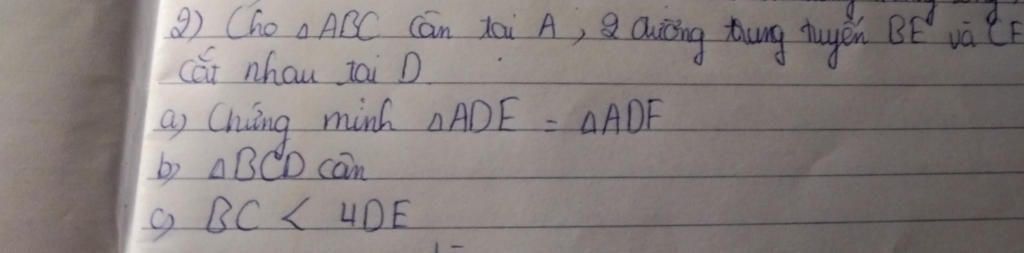 2) Cho △ABC cân tại A, 2 đường trung tuyến BE và CF
cắt nhau tại D
a) Chứng minh △ADE = △ADF
b) △BCD cân
c) BC < 4DE